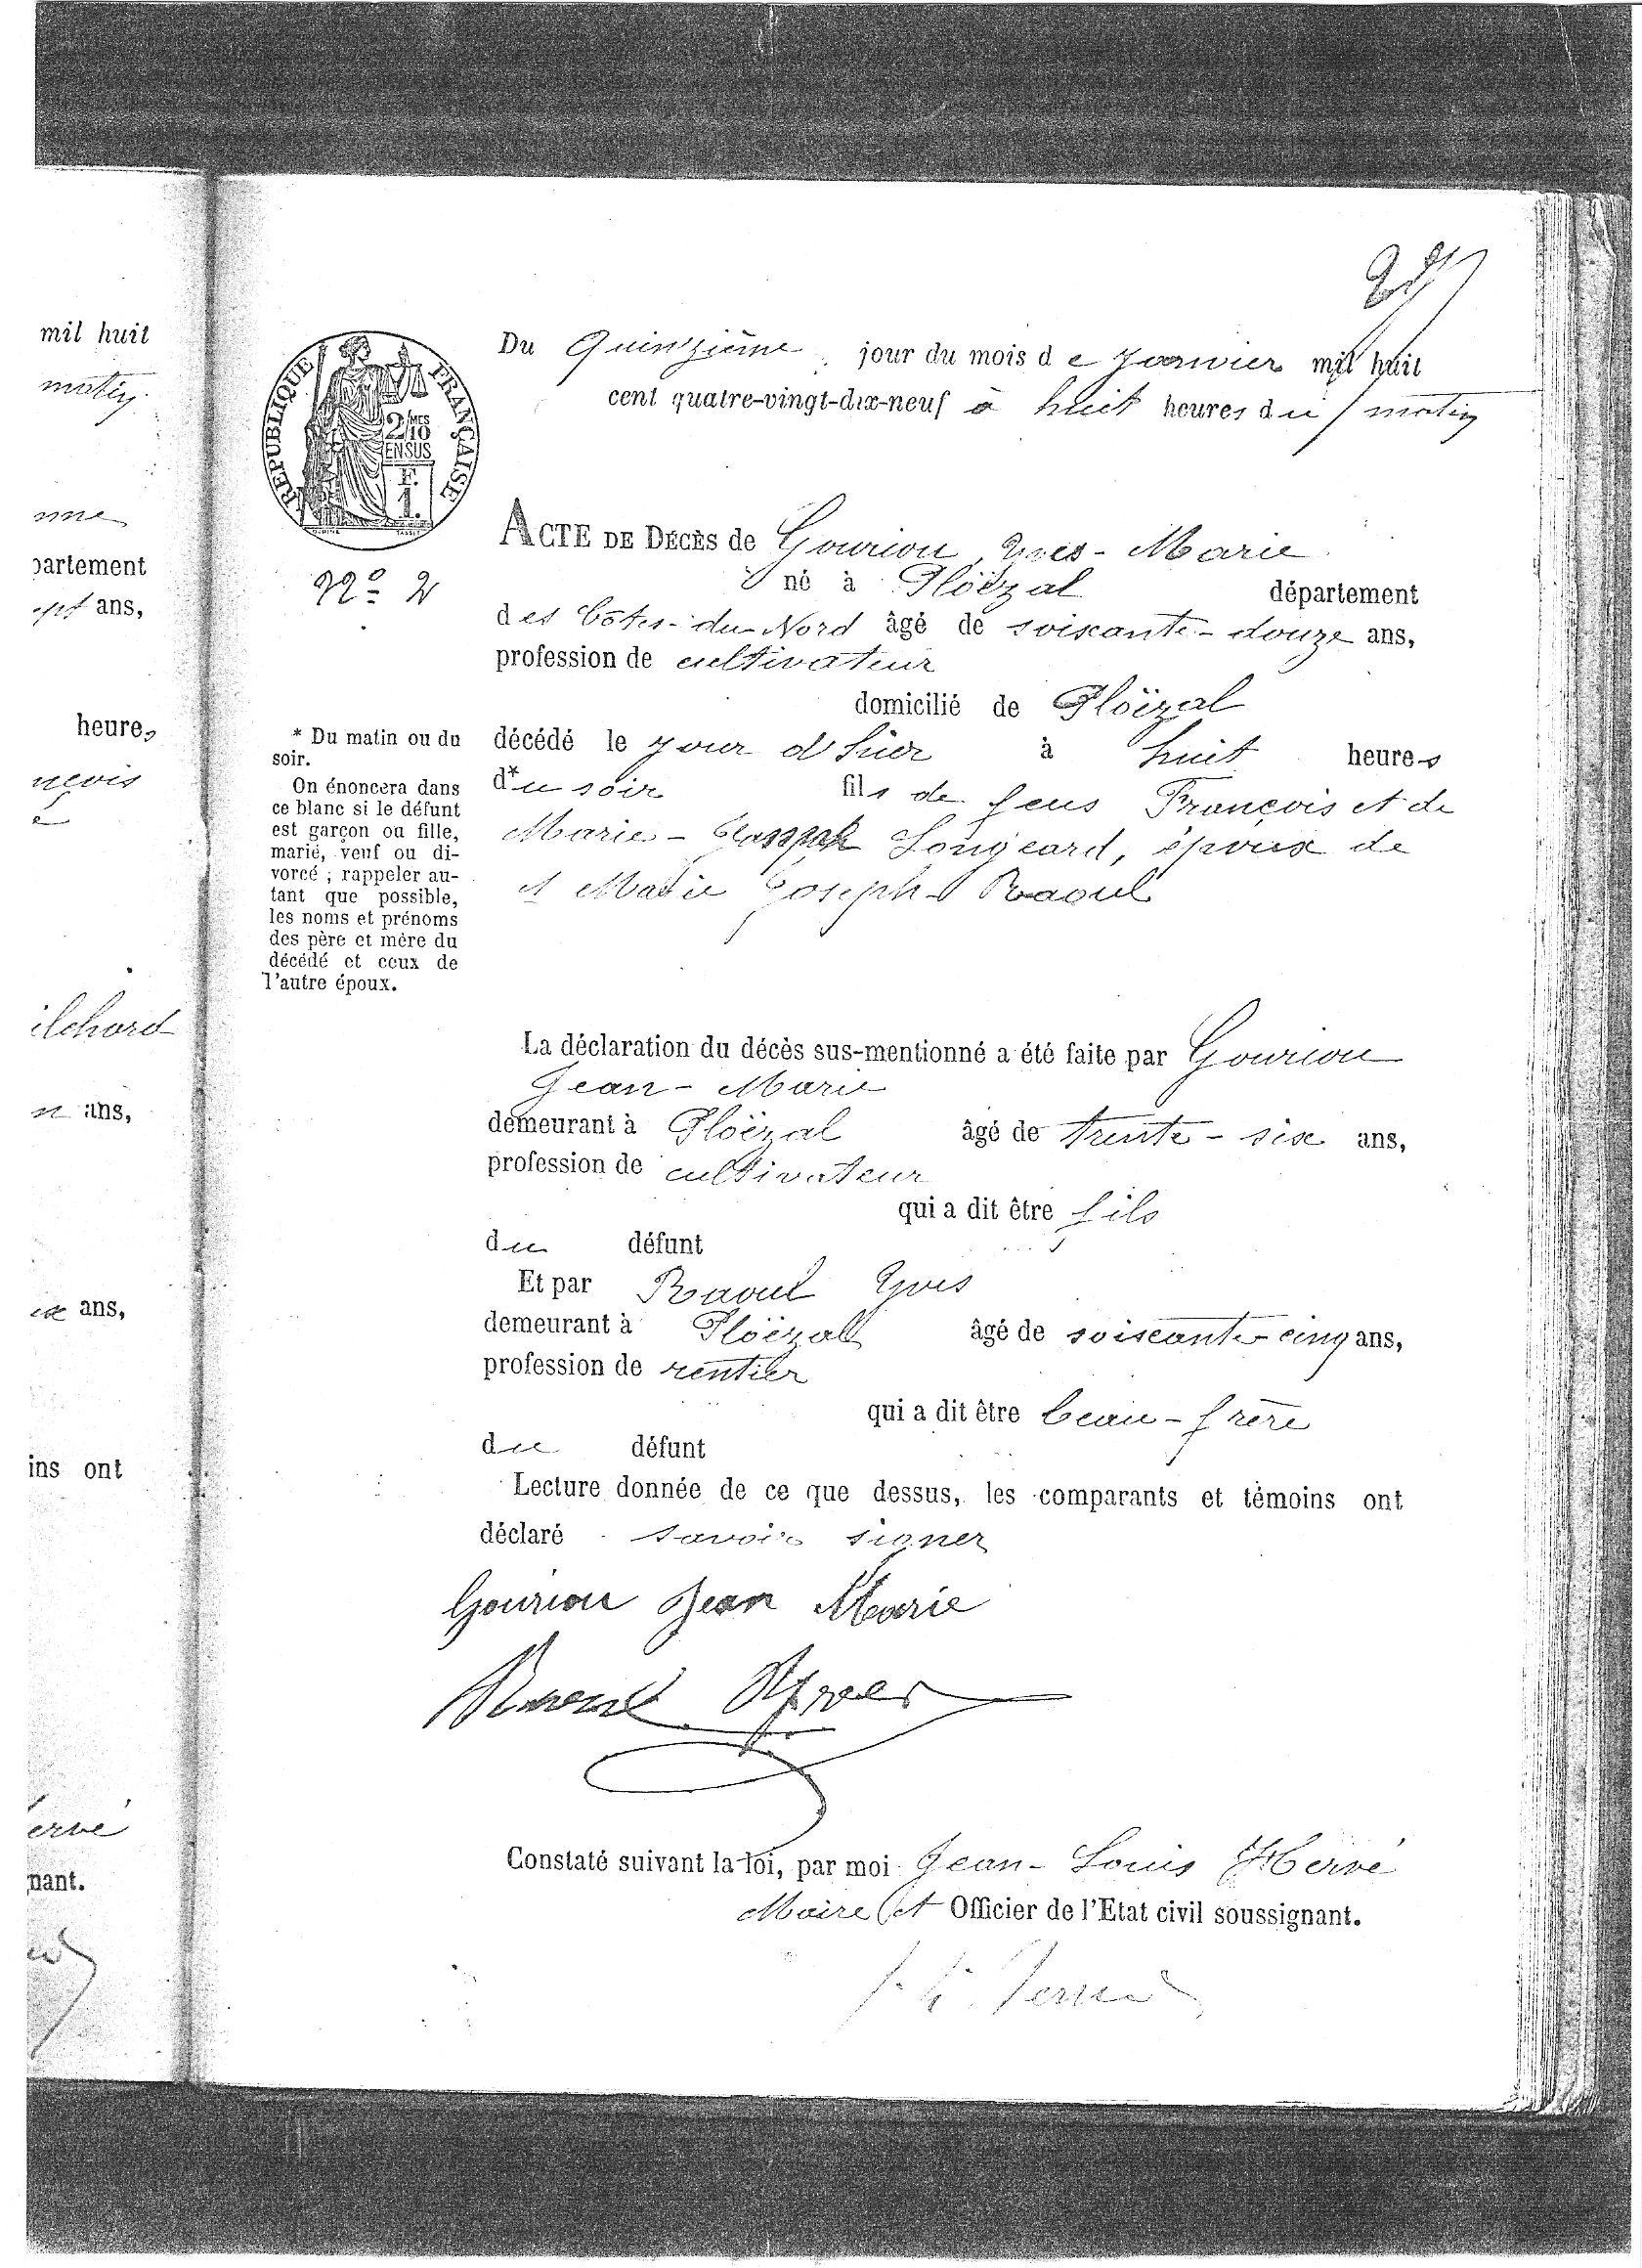 mil huit
matin
partement
ans,
heures
ilchard
ans,
ans,
ins ont
ervé
nant.
Du Quinzième jour du mois de Janvier mil huit
cent quatre-vingt-dix-neuf à huit heures du matin
REPUBLIQUE FRANÇAISE
2/MES
10
EN SUS
F.
1.
OUDINÉ TASSET
No 2
ACTE DE DÉCÈS de Gouriou, Yves-Marie
né à Ploëzal département
des Côtes-du-Nord âgé de soixante-douze ans,
profession de cultivateur
domicilié de Ploëzal
décédé le jour d'hier à huit heures
d*u soir fils de feus François et de
Marie-Joseph Longeard, époux de
Marie Joseph Raoul
* Du matin ou du
soir.
On énoncera dans
ce blanc si le défunt
est garçon ou fille,
marié, veuf ou di-
vorcé ; rappeler au-
tant que possible,
les noms et prénoms
des père et mère du
décédé et ceux de
l'autre époux.
La déclaration du décès sus-mentionné a été faite par Gouriou
Jean-Marie
demeurant à Ploëzal âgé de trente-six ans,
profession de cultivateur
qui a dit être fils
du défunt
Et par Raoul Yves
demeurant à Ploëzal âgé de soixante-cinq ans,
profession de rentier
qui a dit être beau-frère
du défunt
Lecture donnée de ce que dessus, les comparants et témoins ont
déclaré savoir signer
Gouriou Jean Marie
Raoul Yves
Constaté suivant la loi, par moi Jean-Louis Hervé
Maire et Officier de l'Etat civil soussignant.